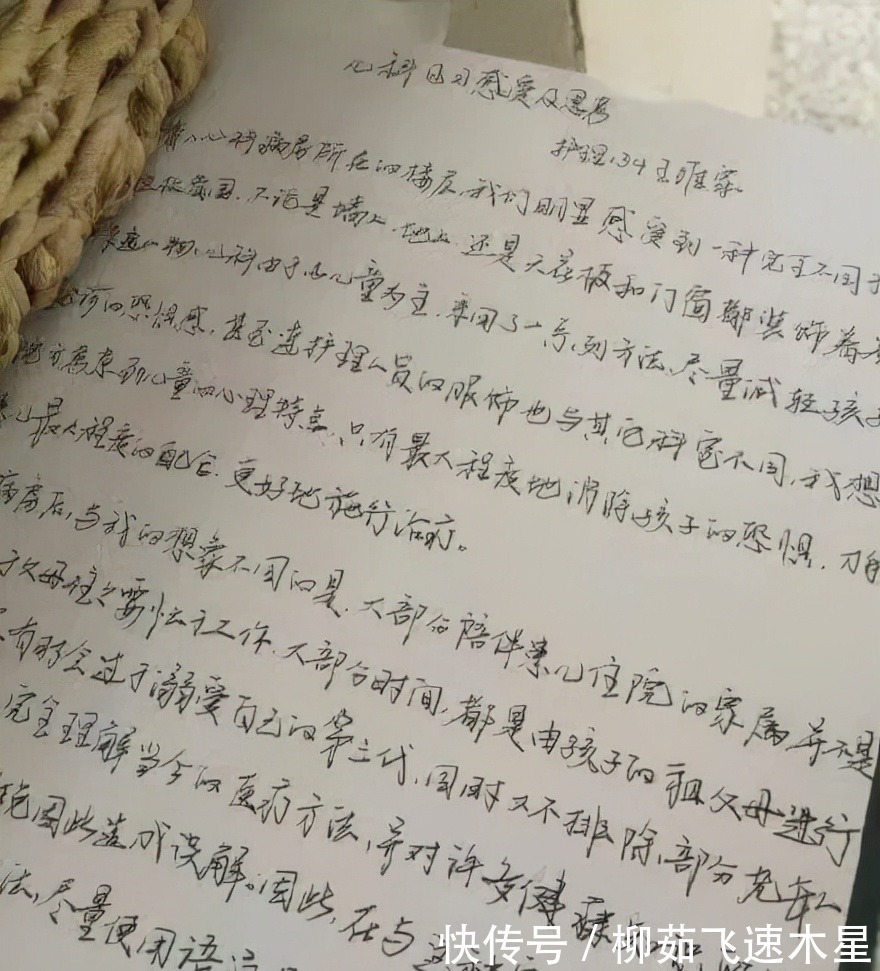 儿科见习感受及思考
护理134 王唯家
儿科病房所在的楼层,我们明显感受到一种完全不同于
氛围.不论是墙上、地上、还是天花板和门窗都装饰着
物,儿科由于以儿童为主,采用了一系列方法,尽量减轻孩子
的恐惧感,甚至连护理人员的服饰也与其它科室不同,我想
地方考虑到儿童的心理特点,只有最大程度地消除孩子的恐惧,才能
最大程度的配合,更好地施行治疗。
病房后,与我的想象不同的是,大部份陪伴患儿住院的家属并不是
父母往往要忙于工作,大部分时间,都是由孩子的祖父母进行
有时会过于溺爱自己的第三代,同时又不排除,部分老年人
完全理解当今的医疗方法,并对许多健康
因此造成误解。因此,在与
法,尽量使用语
快传号 / 柳茹飞速木星